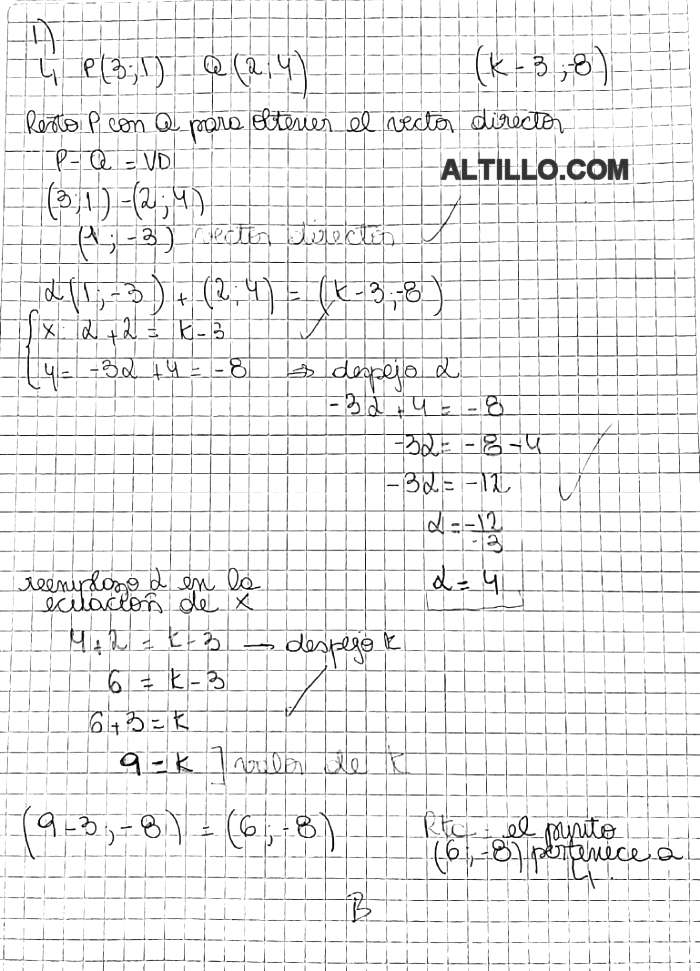 1)
L P(3;1) Q(2;4) (k-3;-8)
Resto P con Q para obtener el vector director
ALTILLO.COM
P - Q = VD
(3;1) - (2;4)
(1;-3) vector director
α(1;-3) + (2;4) = (k-3;-8)
x: α+2 = k-3
y= -3α+4 = -8 ⇒ despejo α
-3α+4 = -8
-3α = -8-4
-3α = -12
α = -12/-3
α = 4
reemplazo α en la
ecuación de x
4+2 = k-3 → despejo k
6 = k-3
6+3 = k
9 = k ] valor de k
(9-3;-8) = (6;-8)
Rta: el punto
(6;-8) pertenece a
L
B